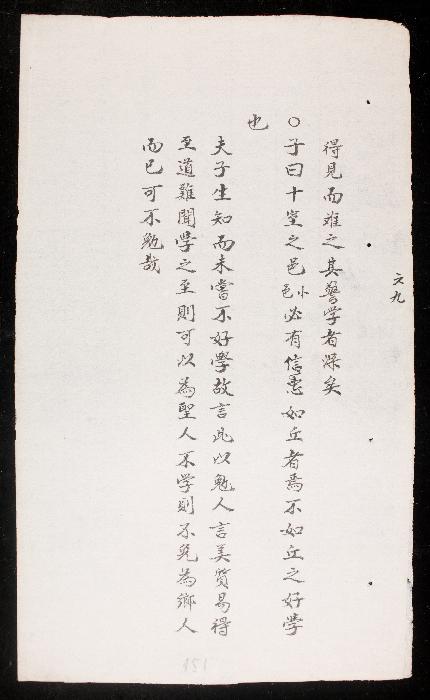 六九
得見而难之其警学者深矣
〇子曰十室之邑小邑必有信忠如丘者焉不如丘之好学
也
夫子生知而未嘗不好学故言此以勉人言美質易得
至道難聞学之至則可以為聖人不学則不免為鄉人
而已可不勉哉
151